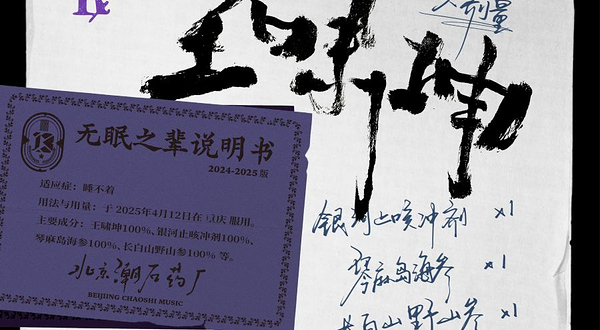 大剂量
王啸坤
无眠之辈说明书
2024-2025版
适应症：睡不着
用法与用量：于2025年4月12日在重庆服用。
主要成分：王啸坤100%、银河止咳冲剂100%、
琴麻岛海参100%、长白山野山参100% 等。
北京潮石药厂
BEIJING CHAOSHI MUSIC
银河止咳冲剂 x1
琴麻岛海参 x1
长白山野山参 x1